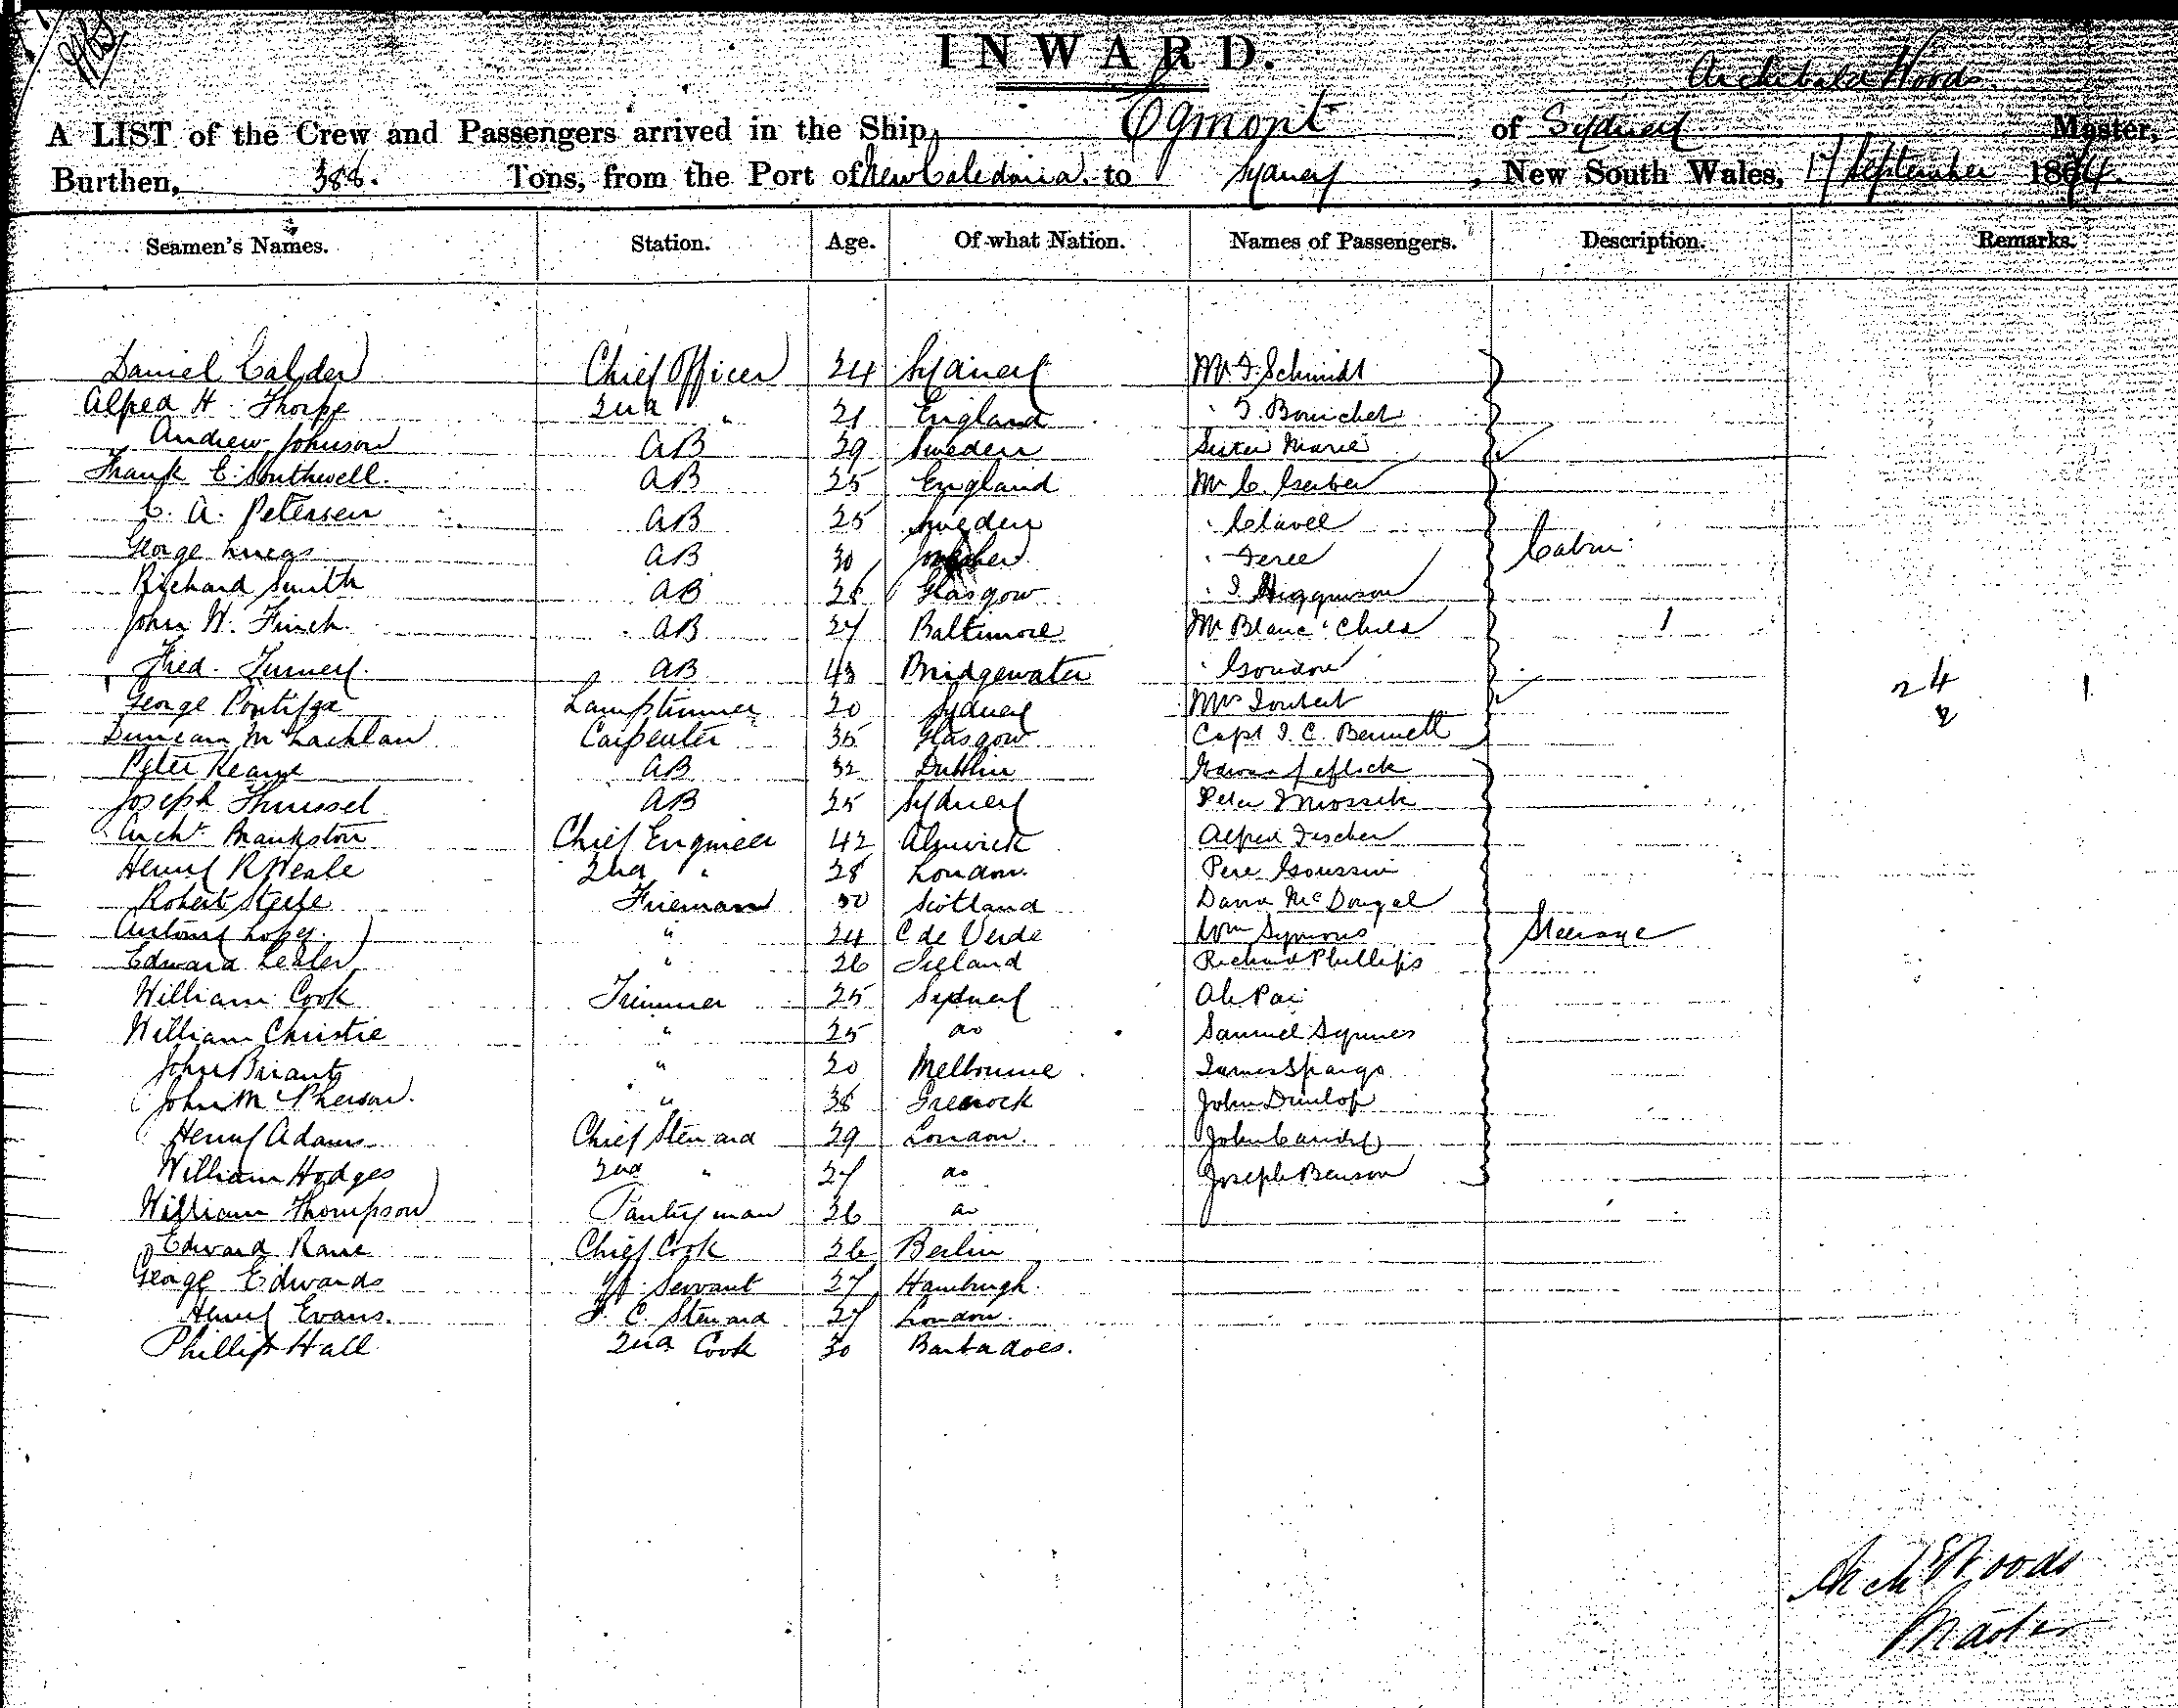 INWARD.
Archibald Woods
A LIST of the Crew and Passengers arrived in the Ship, Egmont of Sydney Master,
Burthen, 388. Tons, from the Port of New Caledonia. to Sydney, New South Wales, 17 September 1874.
Seamen's Names. Station. Age. Of what Nation. Names of Passengers. Description. Remarks.
Daniel Calder Chief Officer 24 Sydney Mr F. Schmidt
Alfred H Thorpe 2nd " 21 England
Andrew Johnson AB 29 Sweden Sister Marie
Frank E. Southwell. AB 25 England Mr C.
C. A. Petersen AB 25 Sweden
George Lucas AB 30 Cabin
Richard Smith AB 28 Glasgow Higginson
John W. Finch. AB 27 Baltimore Mr Blanc " Child 1
Fred. Turney. AB 43 Bridgewater
George Pontifex Lamptrimmer 20 Sydney Mrs Joubert 24 1
Duncan McLachlan Carpenter 35 Glasgow Capt J. C. Bennett
Peter Keane AB 32 Dublin
Joseph AB 25 Sydney Peter
Archd. Brankston Chief Engineer 42 Alnwick Alfred Fischer
Henry R Weale 2nd " 28 London. Pere Goussin
Robert Steele Fireman 30 Scotland David McDougal
Antony Lopez. " 24 C de Verde Wm Symons Steerage
Edward " 26 Ireland Richard Phillips
William Cook Trimmer 25 Sydney Ah Pai
William Christie " 25 do Samuel Symes
John Briant " 20 Melbourne James Spargo
John McPherson. " 38 Greenock John Dunlop
Henry Adams Chief Steward 29 London. John
William Hodges 2nd " 27 do Joseph Benson
William Thompson Pantryman 26 do
Edward Rane Chief Cook 26 Berlin
George Edwards Servant 27 Hamburgh.
Henry Evans. F. C. Steward 27 London.
Phillip Hall 2nd Cook 30 Barbadoes.
Archd Woods
Master